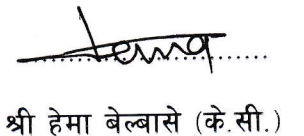 Hema
श्री हेमा बेल्बासे (के.सी.)